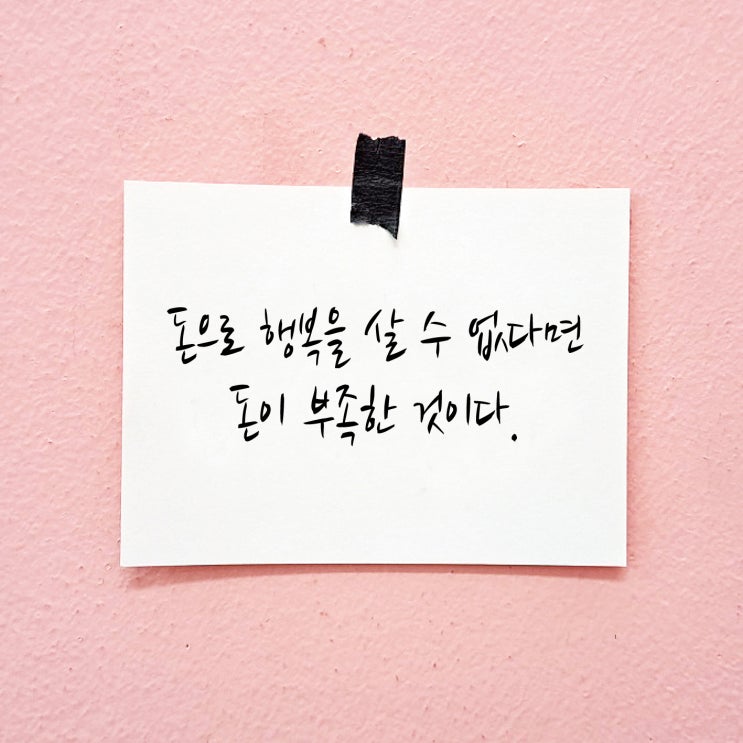 돈으로 행복을 살 수 없다면
돈이 부족한 것이다.